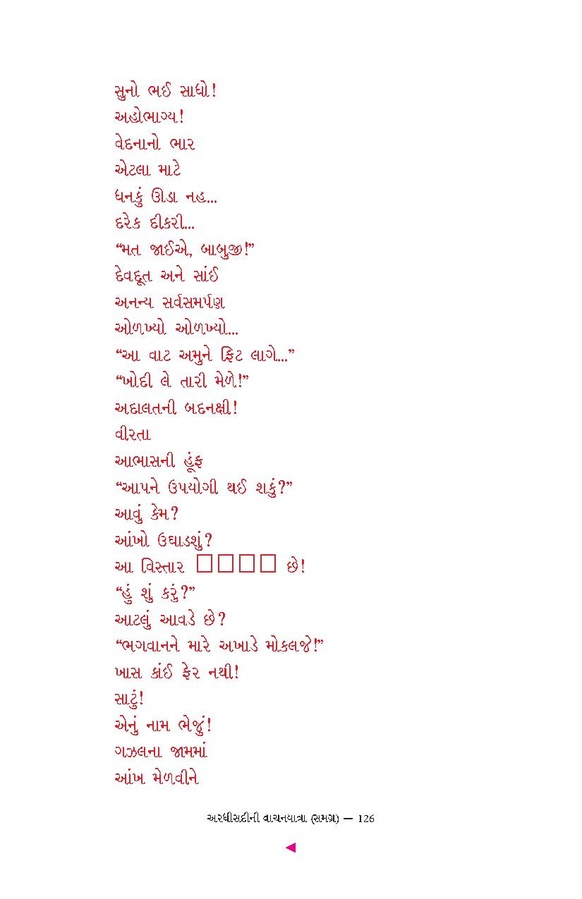 સુનો ભઈ સાધો!
અહોભાગ્ય!
વેદનાનો ભાર
એટલા માટે
ધનકું ઊડા નહ...
દરેક દીકરી...
“મત જાઈએ, બાબુજી!”
દેવદૂત અને સાંઈ
અનન્ય સર્વસમર્પણ
ઓળખ્યો ઓળખ્યો...
“આ વાટ અમુને ફિટ લાગે...”
“ખોદી લે તારી મેળે!”
અદાલતની બદનક્ષી!
વીરતા
આભાસની હૂંફ
“આપને ઉપયોગી થઈ શકું?”
આવું કેમ?
આંખો ઉઘાડશું?
આ વિસ્તાર □□□□ છે!
“હું શું કરું?”
આટલું આવડે છે?
“ભગવાનને મારે અખાડે મોકલજે!”
ખાસ કાંઈ ફેર નથી!
સાટું!
એનું નામ ભેજું!
ગઝલના જામમાં
આંખ મેળવીને
અરધીસદીની વાચનયાત્રા (સમગ્ર) — 126